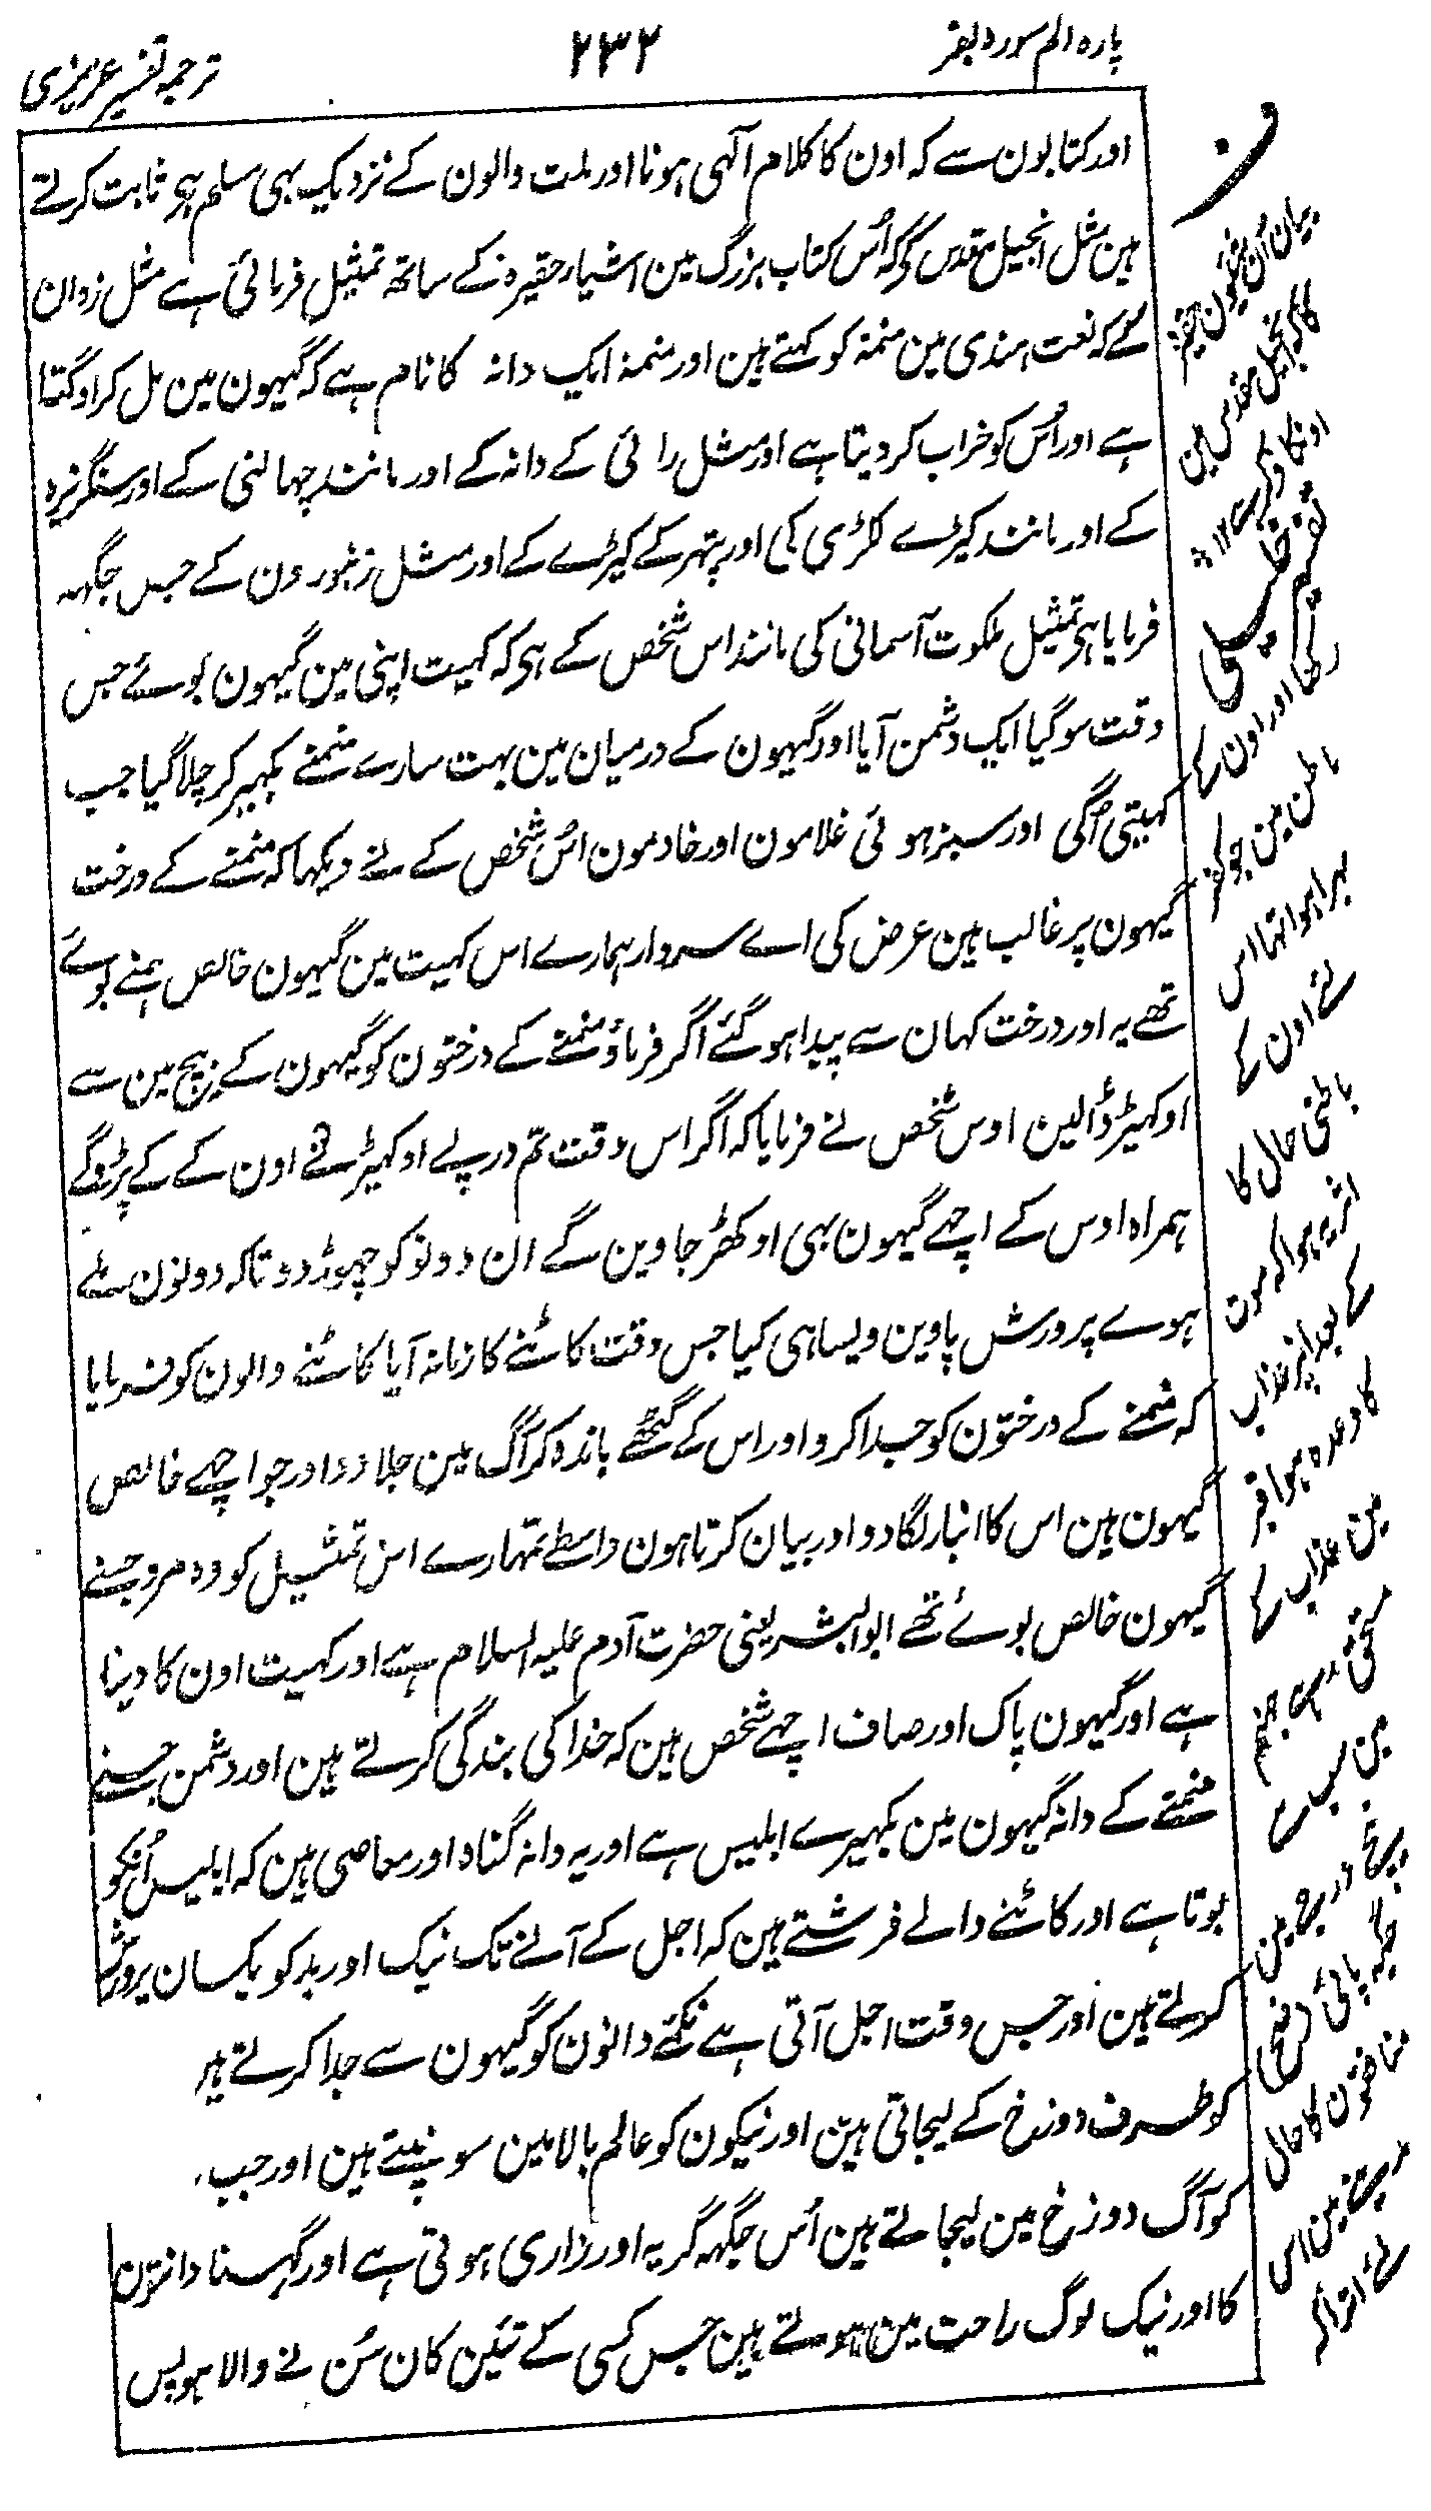 پارہ الم سورہ بقر
۲۳۲
ترجمہ تفسیر عزیزی
اور کتابون سے کہ اون کا کلام الٰہی ہونا اور ملت والون کے نزدیک بہی مسلم ہی ثابت کرتے
ہین مثل انجیل مقدس کی کہ اُس کتاب بزرگ مین اشیاء حقیرہ کے ساتھ تمثیل فرمائی ہے مثل زوان
کے کہ لغت ہندی مین منمنہ کو کہتے ہین اور منمنہ ایک دانہ کا نام ہے کہ گیہون مین مل کر اوگتا
ہے اور اُس کو خراب کر دیتا ہے اور مثل رائی کے دانہ کے اور مانند چہالنی کے اور سنگریزہ
کے اور مانند کیڑے لکڑی کی اور پتہر کے کیڑے کے اور مثل زنبورون کے جس جگہہ
فرمایا ہی تمثیل ملکوت آسمانی کی مانند اس شخص کے ہی کہ کہیت اپنی مین گیہون بوئے جس
وقت سو گیا ایک دشمن آیا اور گیہون کے درمیان مین بہت سارے منمنے بکہیر کر چلا گیا جب
کہیتی اُگی اور سبز ہوئی غلامون اور خادمون اُس شخص کے نے دیکہا کہ منمنے کے درخت
گیہون پر غالب ہین عرض کی اے سردار ہمارے اس کہیت مین گیہون خالص ہمنے بوئے
تھے یہ اور درخت کہان سے پیدا ہو گئے اگر فرماؤ منمنے کے درختون کو گیہون کے بیچ مین سے
اوکہیڑ ڈالین اوس شخص نے فرمایا کہ اگر اس وقت تم درپے اوکہیڑنے اون کے کے پڑوگے
ہمراہ اوس کے اچھے گیہون بہی اوکھڑ جاوین گے ان دونو کو چہوڑ دو تاکہ دونون ملے
ہوے پرورش پاوین ویسا ہی کیا جس وقت کاٹنے کا زمانہ آیا کاٹنے والون کو فرمایا
کہ منمنے کے درختون کو جدا کرو اور اس کے گٹھے باندہ کر آگ مین جلا دو اور جو اچھے خالص
گیہون ہین اس کا انبار لگا دو اور بیان کرتا ہون واسطے تمہارے اس تمثیل کو وہ مرد جسنے
گیہون خالص بوئے تھے ابو البشر یعنی حضرت آدم علیہ السلام ہے اور کہیت اون کا دنیا
ہے اور گیہون پاک اور صاف اچھے شخص ہین کہ خدا کی بندگی کرتے ہین اور دشمن جسنے
منمنے کے دانہ گیہون مین بکہیرے ابلیس ہے اور یہ دانہ گناہ اور معاصی ہین کہ ابلیس اُنکو
بوتا ہے اور کاٹنے والے فرشتے ہین کہ اجل کے آنے تک نیک اور بد کو یکسان پرورش
کرتے ہین اور جس وقت اجل آتی ہے نکمے دانون کو گیہون سے جدا کرتے ہیں
کو طرف دوزخ کے لیجاتی ہین اور نیکون کو عالم بالا مین سونپتے ہین اور جب
کو آگ دوزخ مین لیجاتے ہین اُس جگہہ گریہ اور زاری ہوتی ہے اور گہسنا دانتون
کا اور نیک لوگ راحت مین ہوتے ہین جس کسی کے تئین کان سُن نے والا ہو پس
ف
کا کہ انجیل مقدس مین
اونکا ذکر ہے ۱۲
رکھا اور اون کے
باطن مین جو کفر
بہرا ہوا تہا اس
نے اون کے
باطنی حال کا
اثر یہ ہوا کہ موت
کے بعد
کا وعدہ ہوا قبر
مین عذاب کے
مستحق
جگہ پائی
منافقون کا حال